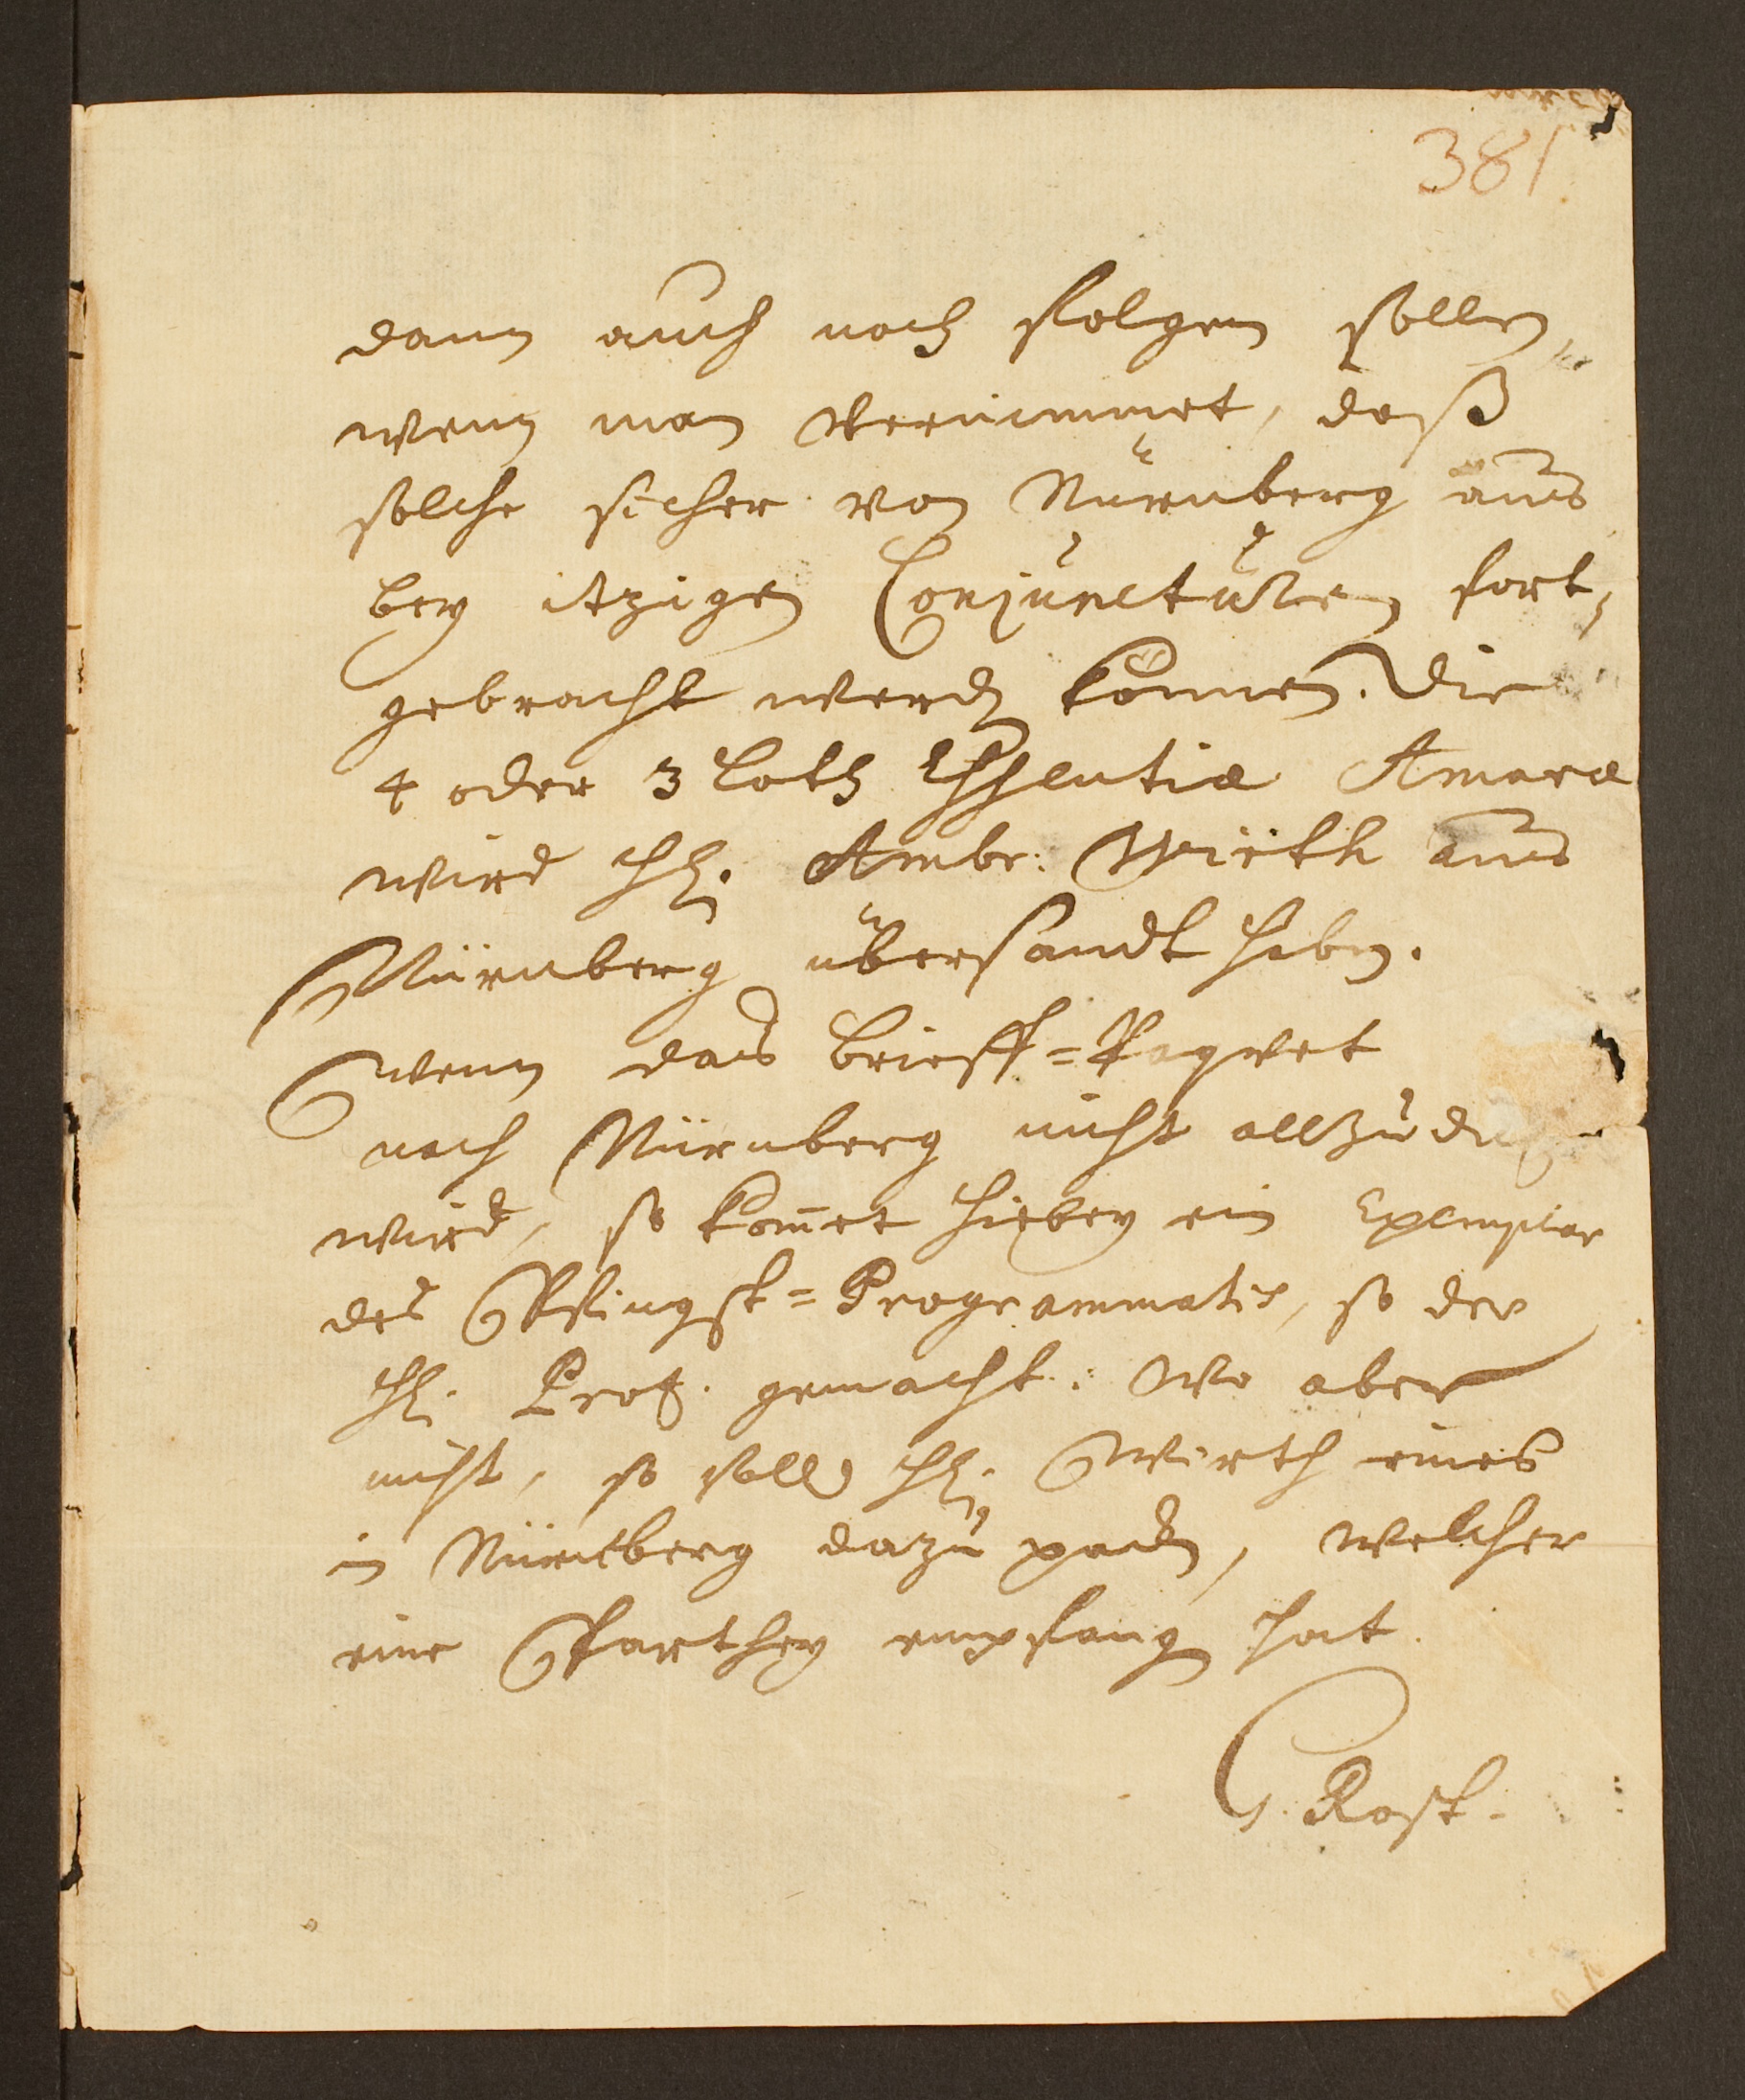 381
dann auch noch folgen sollen,
wenn man vernimmet, daß
solche sicher von Nürnberg aus
bey itzigen Conjuncturen fort-
gebracht werden können. Die
4 oder 3 Loth Essentiæ Amaræ
wird H. Ambr: Wirth aus
Nürnberg übersandt haben.
Wenn das Brieff=Paqvet
nach Nürnberg nicht allzu
wird, so kom̅et hiebey ein Exemplar
des Pfingst=Programmatis, so der
H. Prof. gemacht. Wo aber
nicht, so soll H. Wirth eines
in Nürnberg dazu packen, welcher
eine Parthey empfangen hat.
G. Rost.